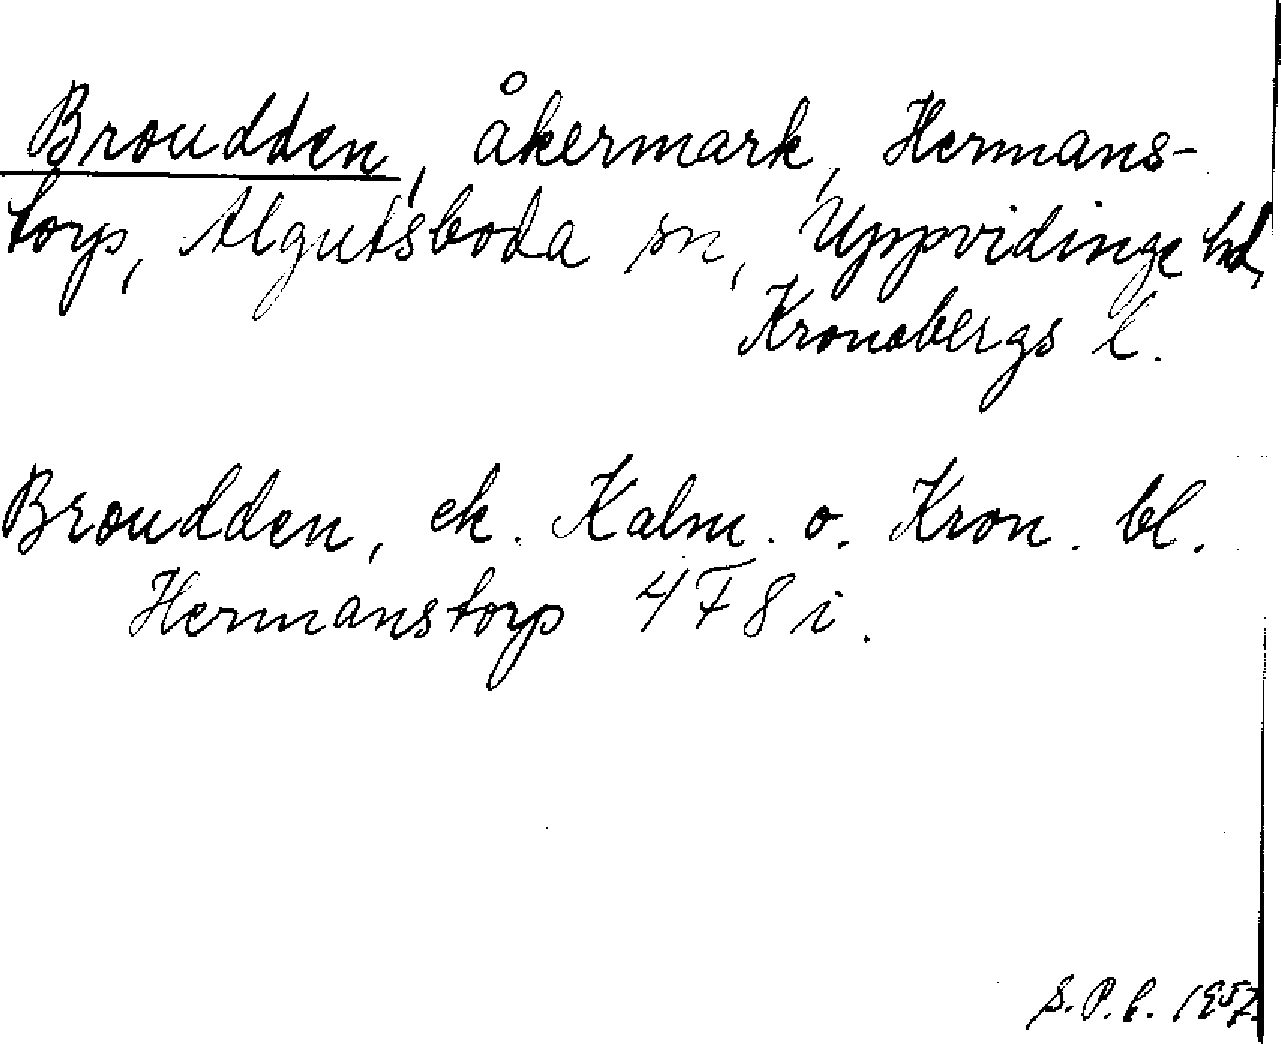 Broudden, åkermark, Hermans-
torp, Algutsboda sn, Uppvidinge hd,
Kronobergs l.
Broudden, ek. Kalm. o. Kron. bl.
Hermanstorp 4 F 8 i.
S.P.B. 1957.